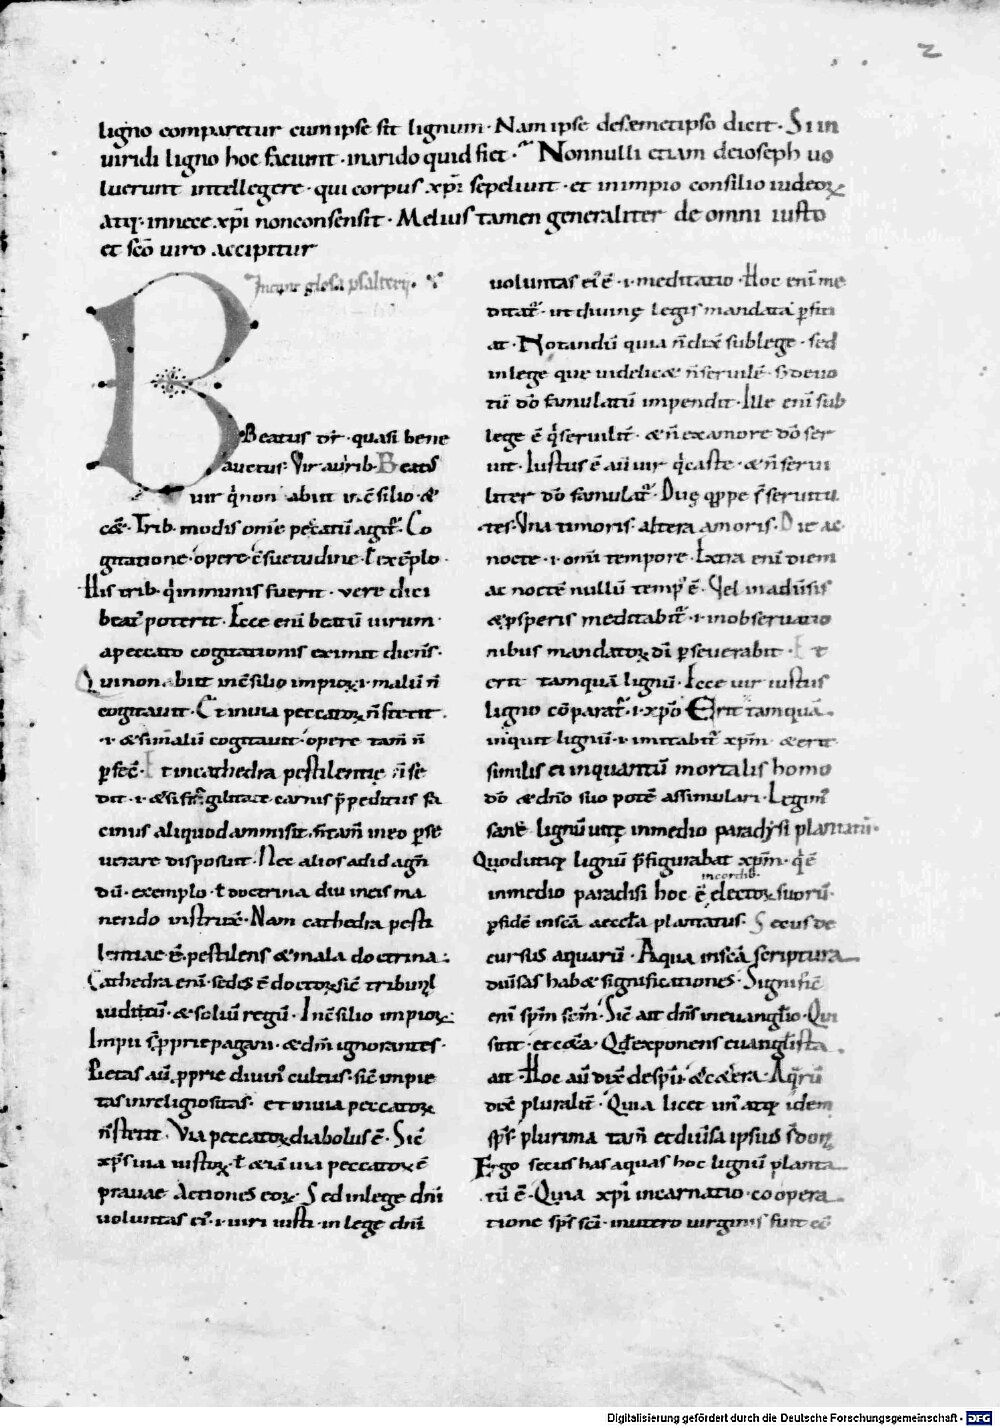 2
ligno comparetur cum ipse sit lignum · Nam ipse desemetipso dicit · Si in
uiridi ligno hoc faciunt · inarido quid fiet · Nonnulli etiam deioseph uo
luerunt intellegere · qui corpus xpi sepeliuit · et inimpio consilio iudeoꝝ
atq; innece xpi nonconsensit · Melius tamen generaliter de omni iusto
et scō uiro accipitur
Incipit glosa psalterij
Beatus dr̄ · quasi bene
auctus · Vir aut̄ uirib · Beatus
uir q̄ non abiit incōsilio · &
cæt̄ · Trib · modis om̄e peccatū agit̄ · Co
gitatione · opere · c̄suetudine · ł exēplo ·
His trib · q̄ inmunis fuerit · uere dici
beat' poterit · Ecce enī beatū uirum ·
apeccato cogitationis eximit dicens̄ ·
Qui non abiit incōsilio impioꝝ · i · malū n̄
cogitauit · Et inuia peccatoꝝ n̄ stetit ·
· i · & si malū cogitauit · opere tam̄ n̄
ꝑfec̄ · Et incathedra pestilentię n̄ se
dit · i · & si fragilitate carnis p̄peditus fa
cinus aliquod ammisit · n̄ tam̄ ineo ꝑse
uerare disposuit · Nec alios adid agn̄
dū · exemplo · ł doctrina diu ineis ma
nendo instruxē · Nam cathedra pesti
lentiae ē pestilens & mala doctrina ·
Cathedra enī · sedes ē doctoꝝ sic̄ tribunł
iudicū · & soliū regū · In cōsilio impioꝝ ·
Impii s̄ ꝓprie pagani · & dm̄ ignorantes ·
Pietas aū ꝓprie diuin' cultus · sic̄ impie
tas inreligiositas · et inuia peccatoꝝ
n̄ stetit · Via peccatoꝝ diabolus ē · Sic̄
xp̄s uia iustoꝝ · ł &iā uia peccatoꝝ ē
prauae actiones eoꝝ · Sed inlege dn̄i
uoluntas ei' · i · uiri iusti · in lege dn̄i
uoluntas ei' ē · i · meditatio · Hoc enī me
ditat̄ · ut diuinę legis mandata ꝑfici
at · Notandū quia n̄ dix̄ sublege · sed
inlege que uidelic& n̄ seruilē · s; deuo
tū dō famulatū impendit · Ille enī sub
lege ē q̄ seruilit̄ · & n̄ examore dō ser
uit · Iustus ē aū uir q̄ caste · & n̄ serui
liter dō famulat̄ · Duę q̄ppe s̄ seruitu
tes · Vna timoris · altera amoris · Die ac
nocte · i · omī tempore · Extra enī diem
ac noctē nullū temp' ē · Vel inaduersis
& ꝓsperis meditabit̄ · i · inobseruatio
nibus mandatoꝝ dī ꝑseuerabit · Et
erit tamquā lignū · Ecce uir iustus
ligno cōparat̄ · i · xp̄o · Erit tamquā
inquit lignū · i · imitabit̄ xp̄m · & erit
similis ei inquantū mortalis homo
dō & dn̄o suo potē assimulari · Legim'
sane lignū uitę inmedio paradysi plantatū ·
Quod utiq; lignū p̄figurabat xp̄m · q̄ ē
incordib
inmedio paradisi hoc ē electoꝝ suorū ·
ꝑ fidē inscā aecclā plantatus · Secus de
cursus aquarū · Aqua inscā scriptura
diūsas hab& significationes · Signific̄
enī sp̄m scm̄ · Sic̄ ait dn̄s ineuanglio · Qui
sitit · et c&a · Qd̄ exponens euanglista
ait · Hoc aū dix̄ despū · & c&era · Aq̄rū
dix̄ pluralit̄ · Quia licet un' atq; idem
sp̄s · plurima tam̄ et diūsa ipsius s̄ dona
Ergo secus has aquas hoc lignū planta
tū ē · Quia xp̄i incarnatio · coopera
tione sp̄s sci · inutero uirginis fuit
Digitalisierung gefördert durch die Deutsche Forschungsgemeinschaft - DFG